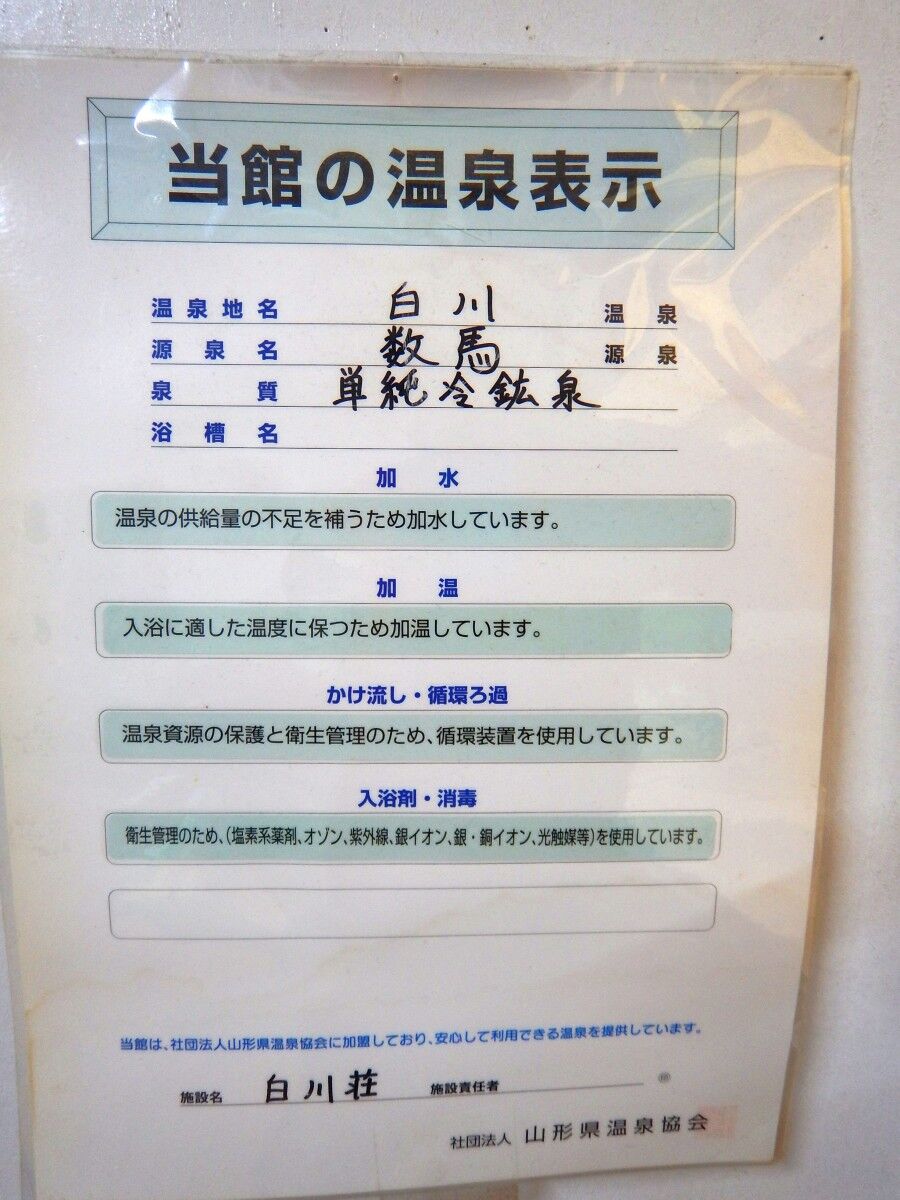 当館の温泉表示
温泉地名 白川 温泉
源泉名 数馬 源泉
泉質 単純冷鉱泉
浴槽名
加水
温泉の供給量の不足を補うため加水しています。
加温
入浴に適した温度に保つため加温しています。
かけ流し・循環ろ過
温泉資源の保護と衛生管理のため、循環装置を使用しています。
入浴剤・消毒
衛生管理のため、(塩素系薬剤、オゾン、紫外線、銀イオン、銀・銅イオン、光触媒等)を使用しています。
当館は、社団法人山形県温泉協会に加盟しており、安心して利用できる温泉を提供しています。
施設名 白川荘 施設責任者 ㊞
社団法人 山形県温泉協会